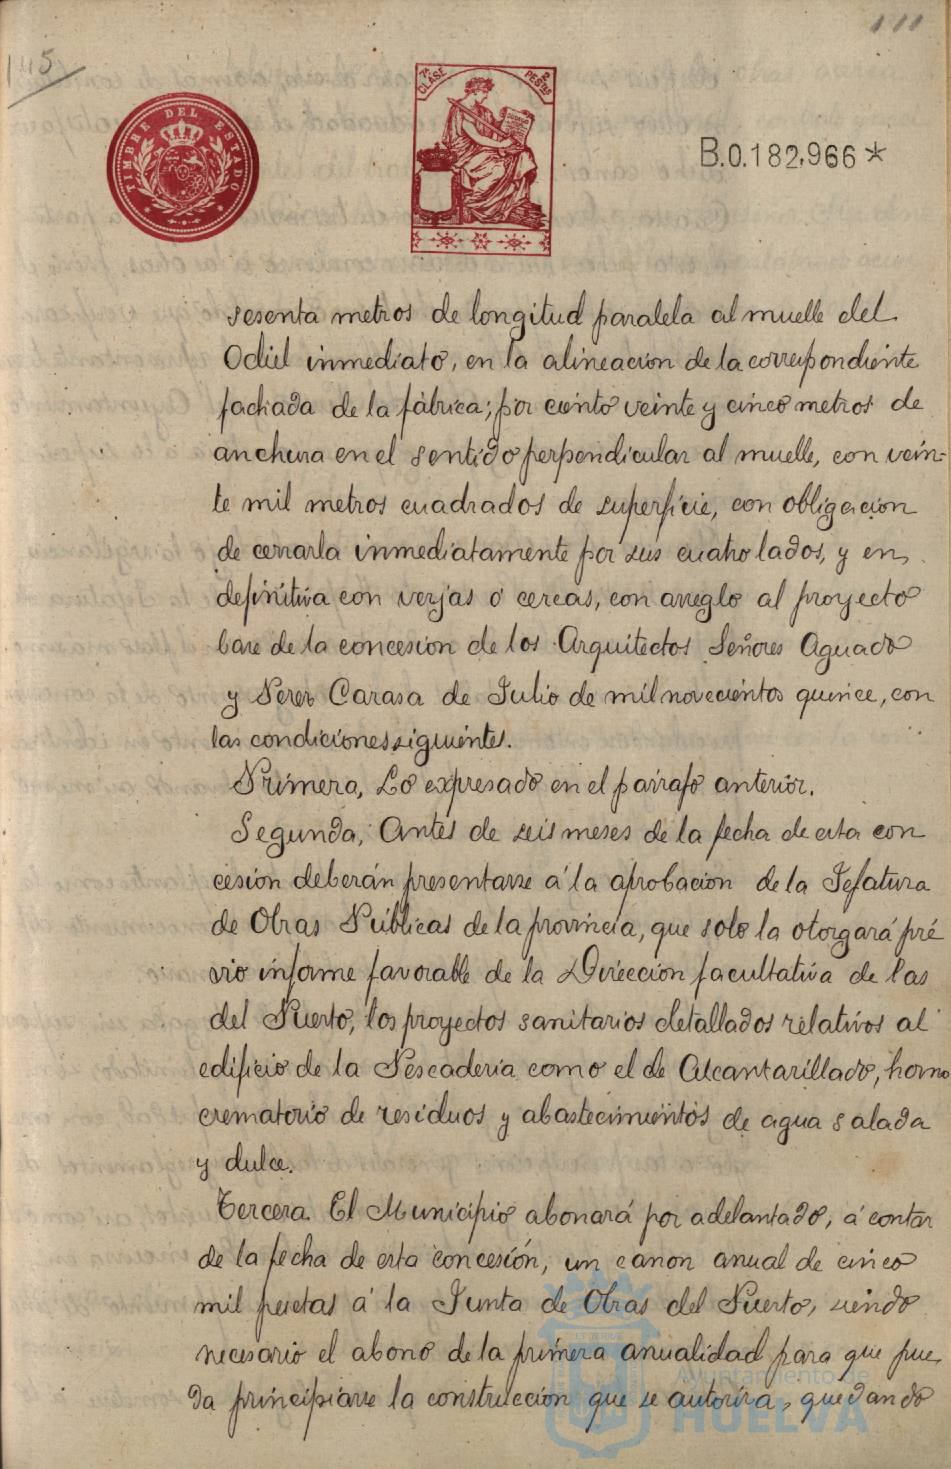 145
111
TIMBRE DEL ESTADO
7ª CLASE
2 PESTAS
B.0.182,966*
sesenta metros de longitud paralela al muelle del
Odiel inmediato, en la alineacion de la correspondiente
fachada de la fábrica; por ciento veinte y cinco metros de
anchura en el sentido perpendicular al muelle, con vein-
te mil metros cuadrados de superficie, con obligacion
de cerrarla inmediatamente por sus cuatro lados, y en
definitiva con verjas ó cercas, con arreglo al proyecto
base de la concesion de los Arquitectos Señores Aguado
y Perez Carasa de Julio de mil novecientos quince, con
las condiciones siguientes.
Primera, Lo expresado en el párrafo anterior.
Segunda, Antes de seis meses de la fecha de esta con
cesión deberán presentarse á la aprobacion de la Jefatura
de Obras Públicas de la provincia, que solo la otorgará pré
vio informe favorable de la Direccion facultativa de las
del Puerto, los proyectos sanitarios detallados relativos al
edificio de la Pescaderia como el de Alcantarillado, horno
crematorio de residuos y abastecimientos de agua salada
y dulce.
Tercera. El Municipio abonará por adelantado, á contar
de la fecha de esta concesión, un canon anual de cinco
mil pesetas á la Junta de Obras del Puerto, siendo
necesario el abono de la primera anualidad para que pue
da principiarse la construccion que se autoriza, quedando
Ayuntamiento de
HUELVA